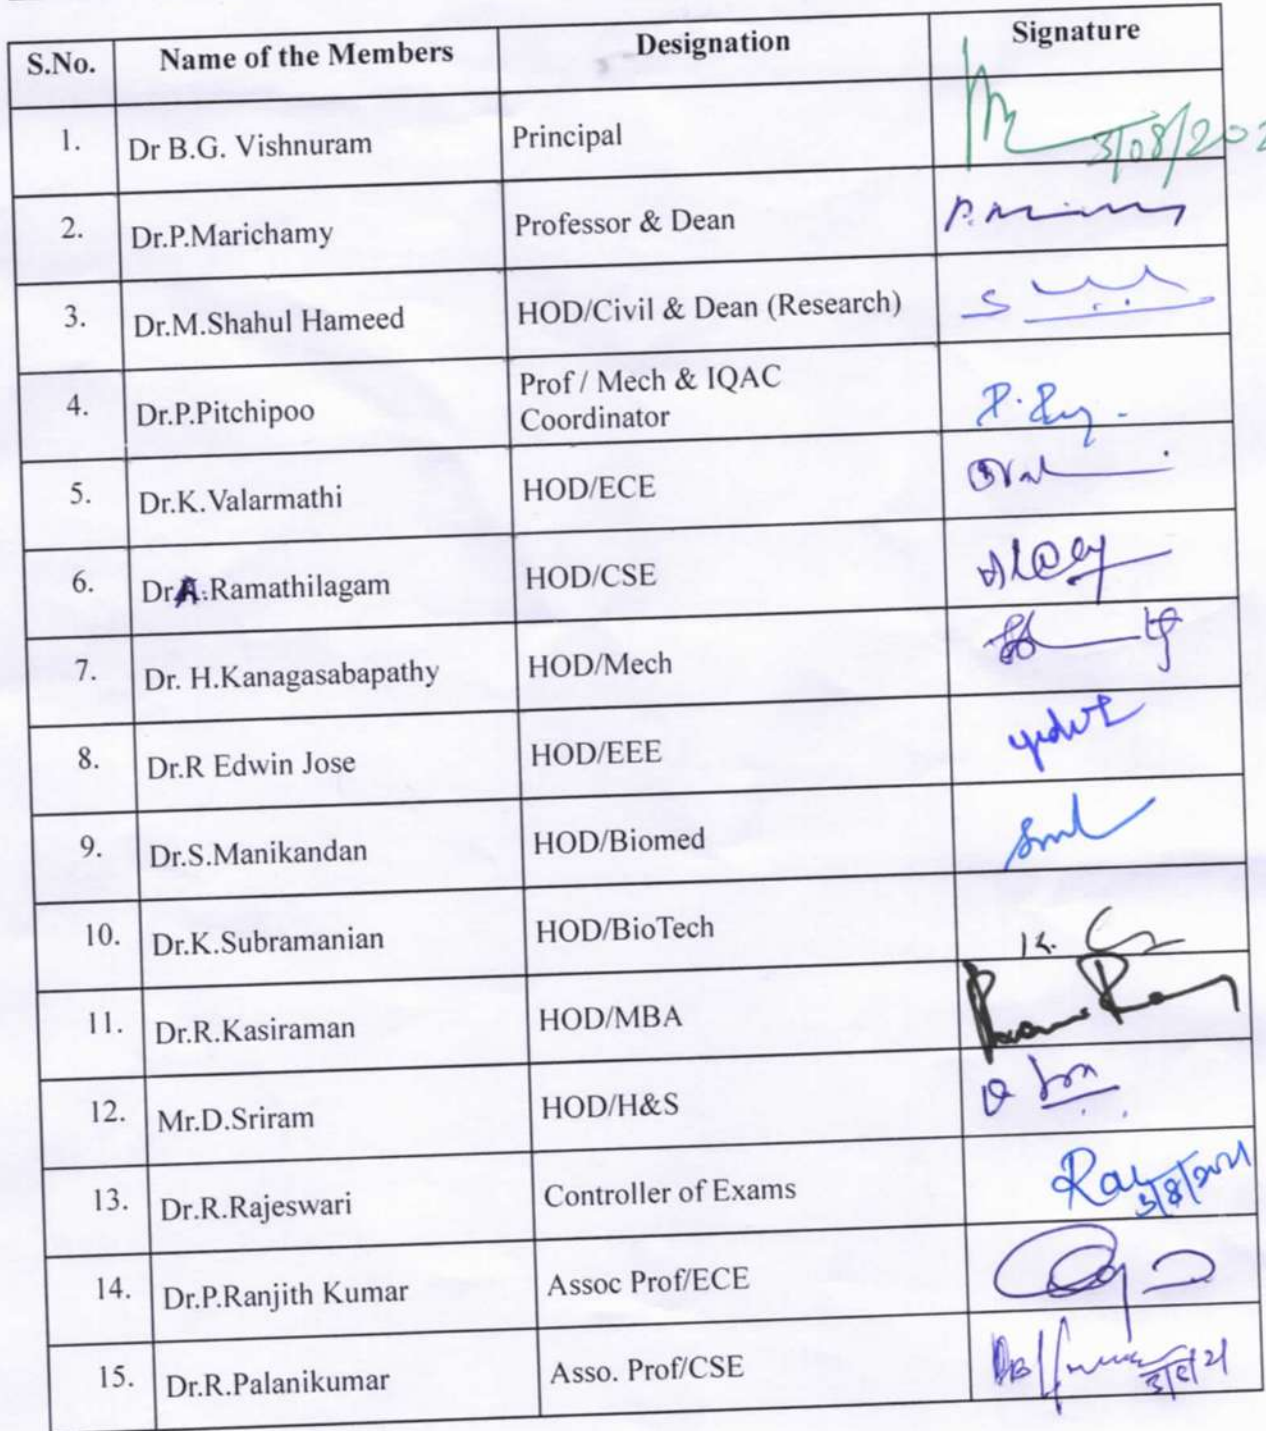 S.No. Name of the Members Designation Signature
1. Dr B.G. Vishnuram Principal 3/08/202
2. Dr.P.Marichamy Professor & Dean
3. Dr.M.Shahul Hameed HOD/Civil & Dean (Research)
4. Dr.P.Pitchipoo Prof / Mech & IQAC
Coordinator
5. Dr.K.Valarmathi HOD/ECE
6. Dr.A.Ramathilagam HOD/CSE
7. Dr. H.Kanagasabapathy HOD/Mech
8. Dr.R Edwin Jose HOD/EEE
9. Dr.S.Manikandan HOD/Biomed
10. Dr.K.Subramanian HOD/BioTech
11. Dr.R.Kasiraman HOD/MBA
12. Mr.D.Sriram HOD/H&S
13. Dr.R.Rajeswari Controller of Exams 3/8/2021
14. Dr.P.Ranjith Kumar Assoc Prof/ECE
15. Dr.R.Palanikumar Asso. Prof/CSE 3/8/21